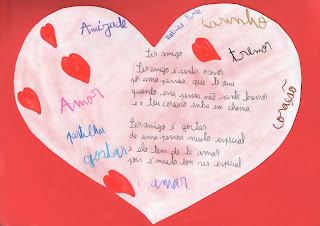 Amizade
carinho
tremor
Amor
partilha
gostar
amar
coração
Ter amigo
Ter amigo é sentir o amor
por uma pessoa que te ama
quando essa pessoa não sente tremor
e o teu coração entra em chama
Ter amigo é gostar
de uma pessoa muito especial
e ela tem de te amar
pois é muito bom ser especial